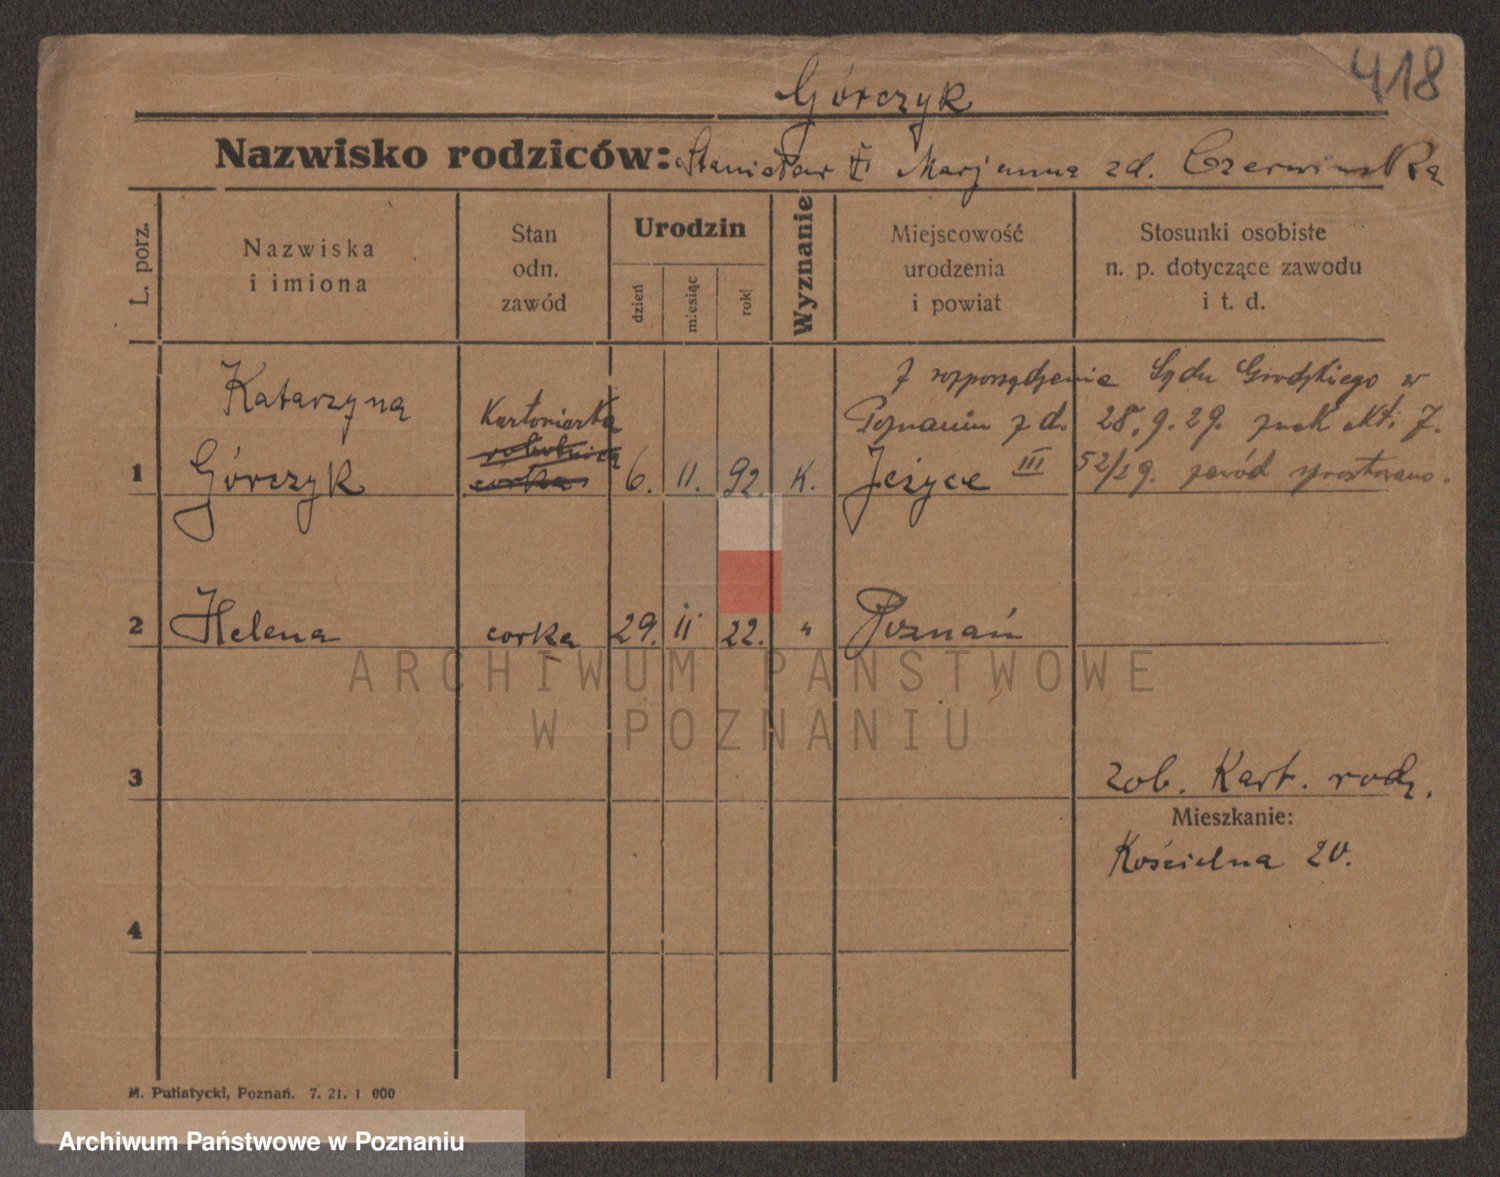 418
Górczyk
Nazwisko rodziców: Stanisław † Marjanna zd. Czerwińska
L. porz.
Nazwiska
i imiona
Stan
odn.
zawód
Urodzin
dzień
miesiąc
rok
Wyznanie
Miejscowość
urodzenia
i powiat
Stosunki osobiste
n. p. dotyczące zawodu
i t. d.
Z rozporządzenia Sądu Grodzkiego w
Poznaniu z d. 28. 9. 29. znak akt: Z.
52/29. zawód sprostowano.
Katarzyna
Kartoniarka
robotnica
1 Górczyk córka 6. 11. 92. K. Jeżyce III
2 Helena corka 29. 11 22. " Poznań
ARCHIWUM PAŃSTWOWE
W POZNANIU
3
zob. Kart. rodz.
Mieszkanie:
Kościelna 20.
4
M. Putiatycki, Poznań. 7. 21. 1 000
Archiwum Państwowe w Poznaniu